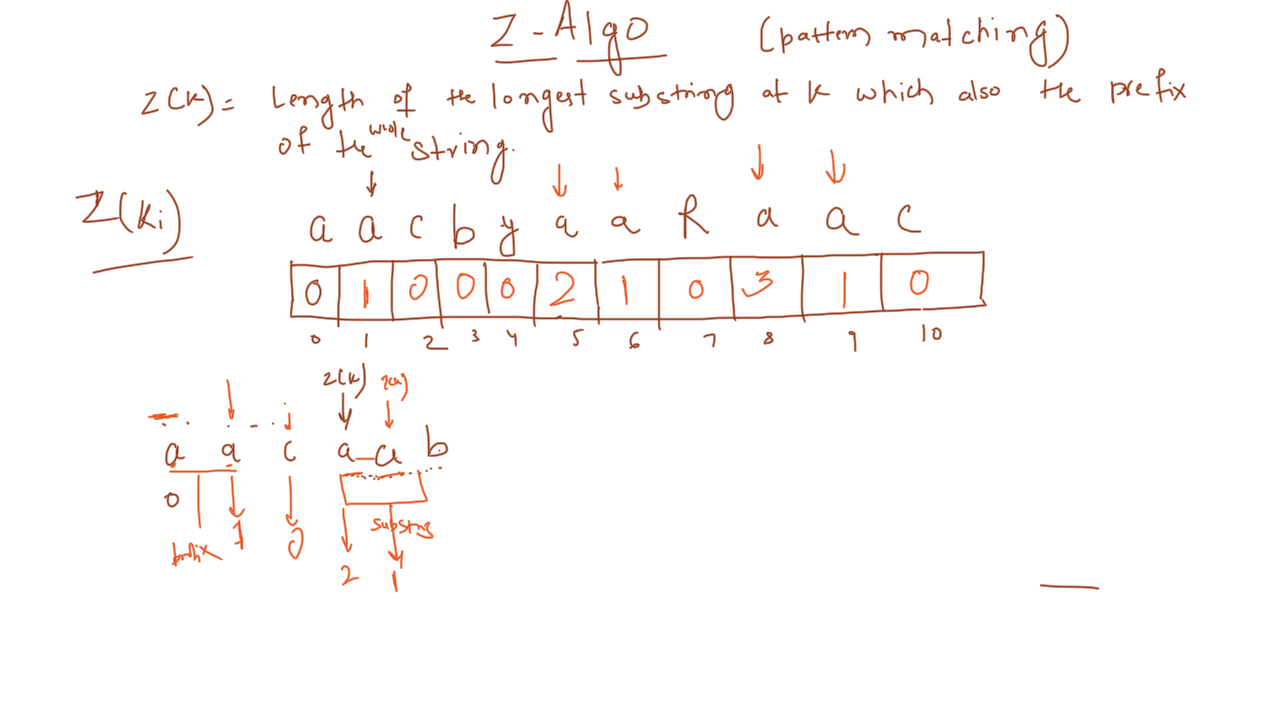 Z-Algo (pattern matching)
Z(K) = Length of the longest substring at K which also the prefix
of the whole string.
Z(Ki)
a a c b y a a R a a c
0 1 0 0 0 2 1 0 3 1 0
0 1 2 3 4 5 6 7 8 9 10
Z(K) Z(K)
a a c a a b
0 1 0 substrng
prefix 2 1